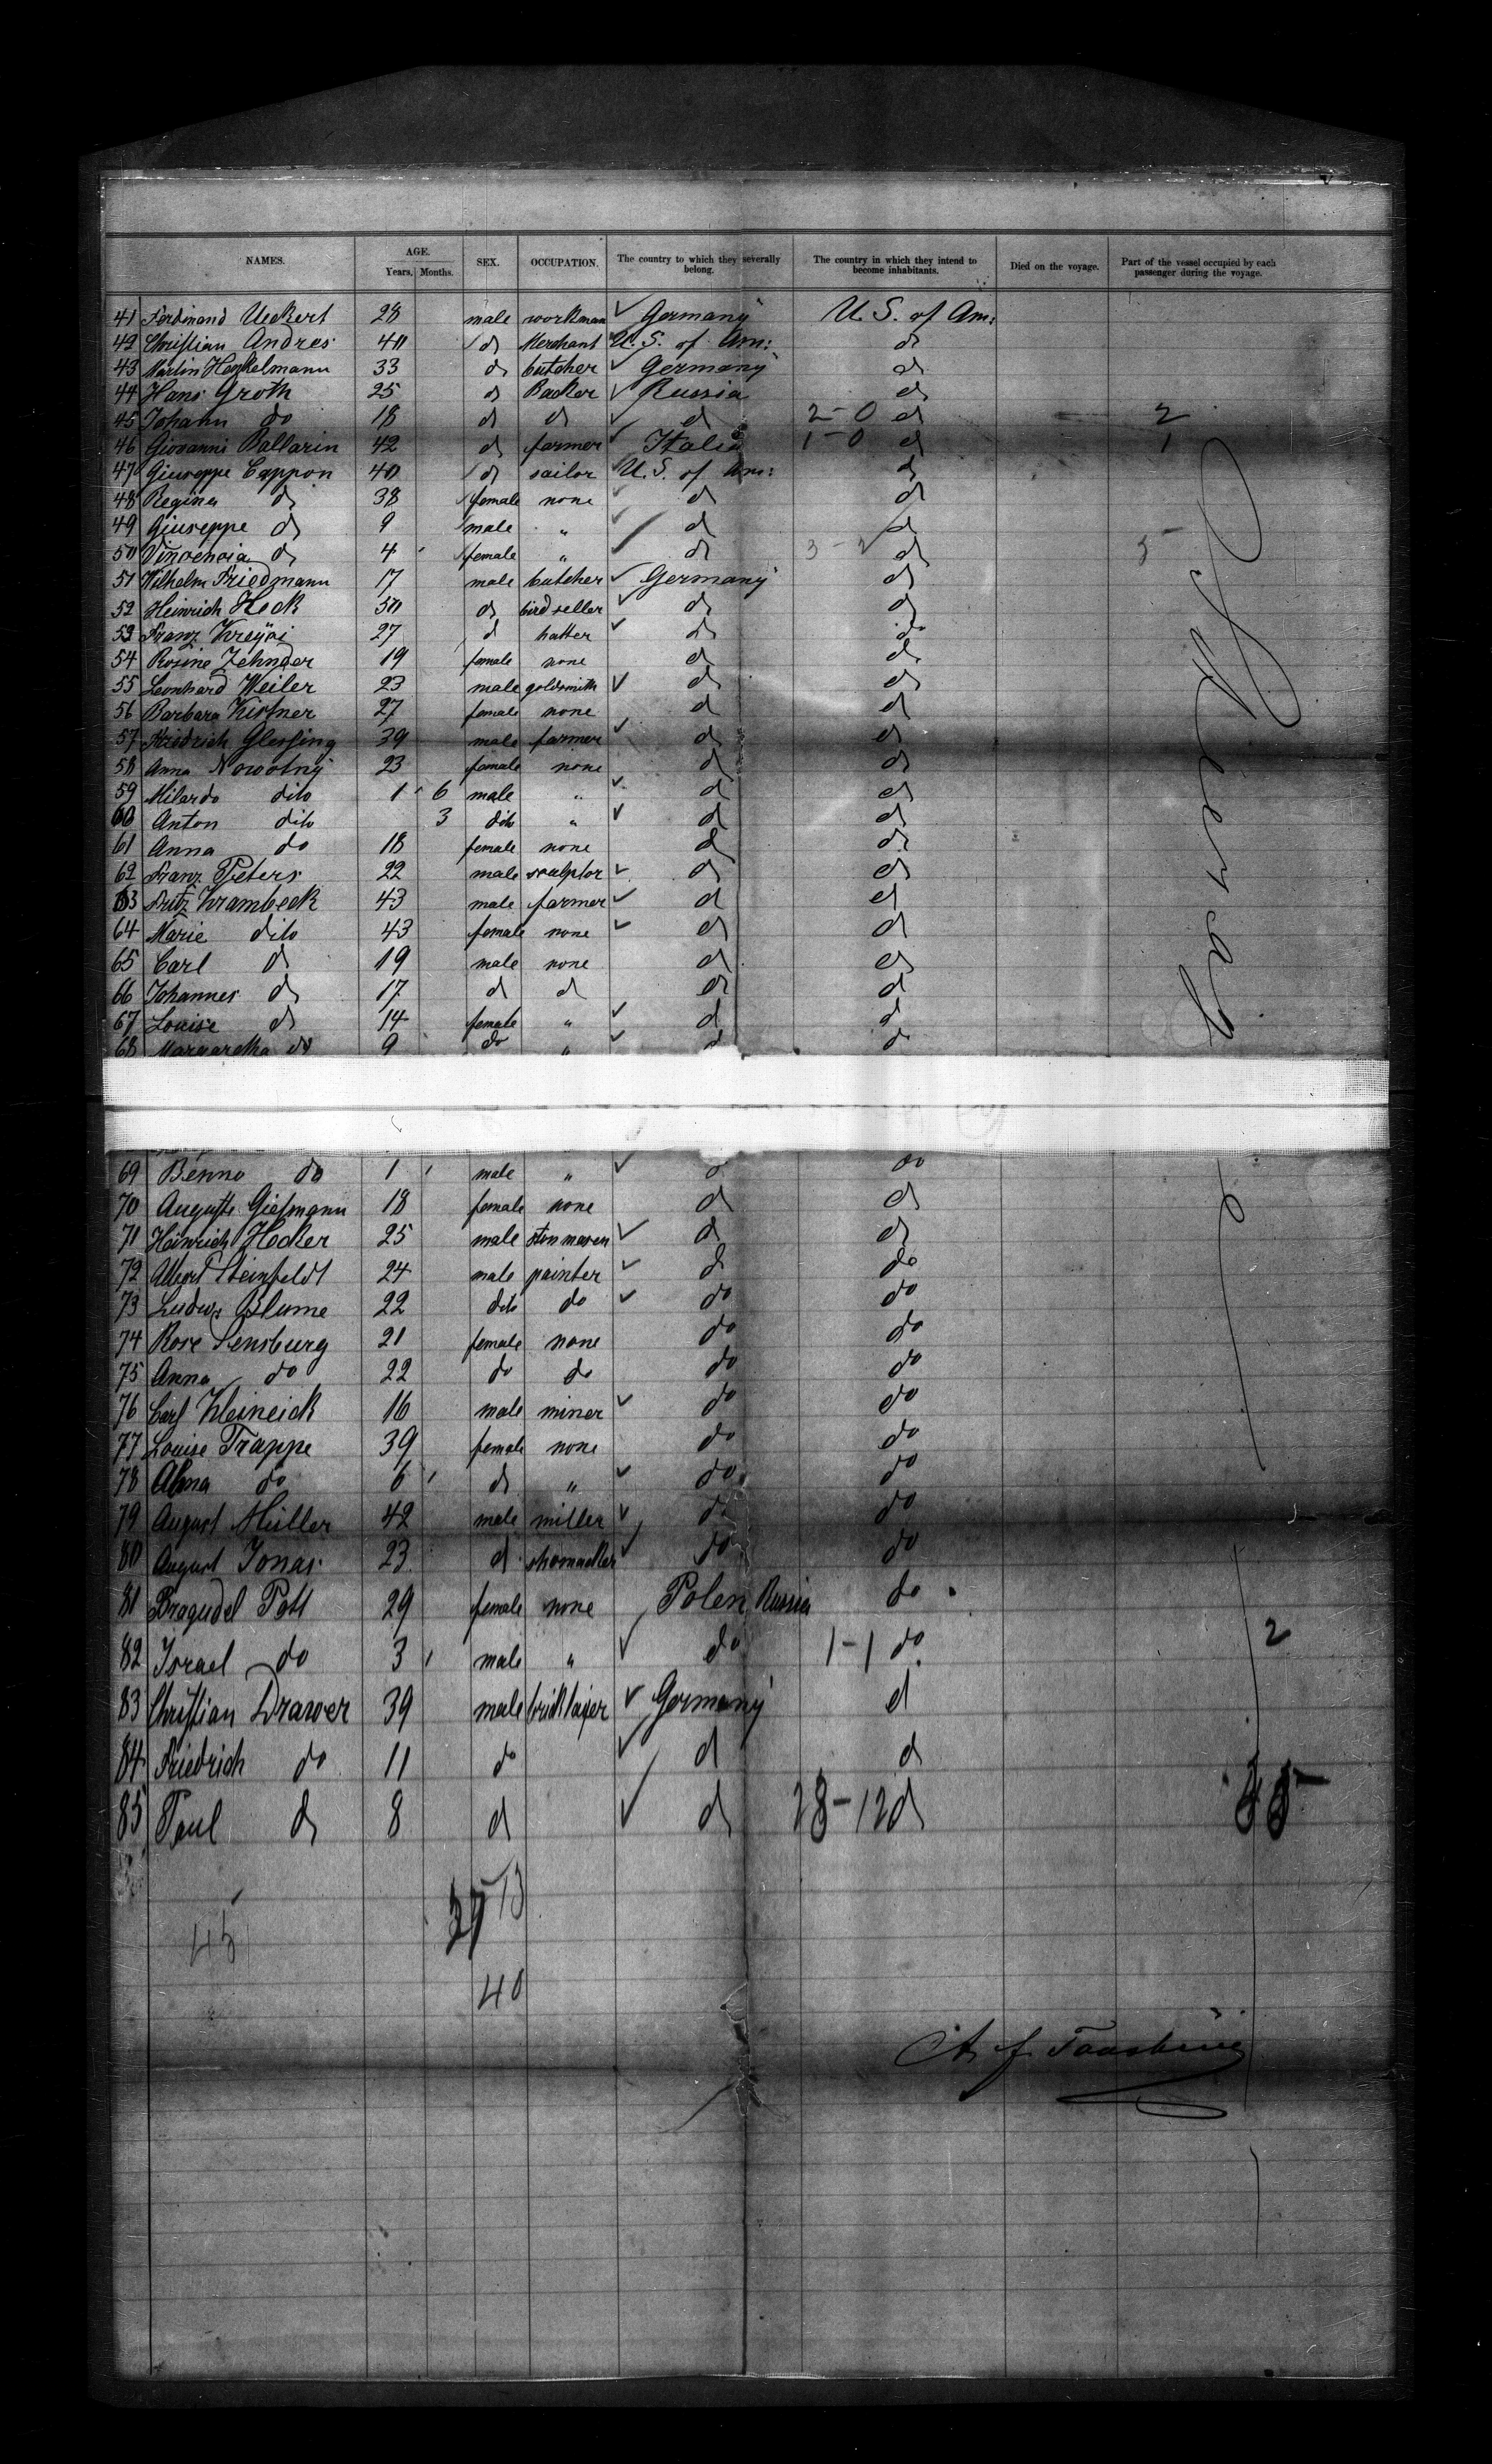 NAMES. AGE. Years. Months. SEX. OCCUPATION. The country to which they severally belong. The country in which they intend to become inhabitants. Died on the voyage. Part of the vessel occupied by each passenger during the voyage.
41 Ferdinand Ueckert 28 male workman Germany U. S. of Am:
42 Christian Andres 40 do Merchant U. S. of Am: do
43 Martin Henkelmann 33 do butcher Germany do
44 Hans Groth 25 do Backer Russia do
45 Johann do 18 do do do 2-0 do 2
46 Giovanni Ballarin 42 do farmer Italia 1-0 do 1
47 Giuseppe Cappon 40 do sailor U. S. of Am: do
48 Regina do 38 female none do do
49 Giuseppe do 9 male " do do
50 Vinzenzia do 4 female " do 3-2 do 5
51 Wilhelm Friedmann 17 male butcher Germany do
52 Heinrich Heck 50 do bird seller do do
53 Franz Kreyci 27 do hatter do do
54 Rosine Zehnder 19 female none do do
55 Leonhard Weiler 23 male goldsmith do do
56 Barbara Kistner 27 female none do do
57 Friedrich Glessing 39 male farmer do do
58 Anna Nowotny 23 female none do do
59 Milardo dito 1 6 male " do do
60 Anton dito 3 dito " do do
61 Anna do 18 female none do do
62 Franz Peters 22 male sculptor do do
63 Fritz Krambeck 43 male farmer do do
64 Marie dito 43 female none do do
65 Carl do 19 male none do do
66 Johannes do 17 do do do do
67 Louise do 14 female " do do
68 Margaretha do 9 do " do do
69 Benno do 1 male " do do
70 Auguste Gießmann 18 female none do do
71 Heinrich Hecker 25 male ston mason do do
72 Albert Steinfeldt 24 male painter do do
73 Ludwig Blume 22 dito do do do
74 Rose Sensburg 21 female none do do
75 Anna do 22 do do do do
76 Carl Kleineick 16 male miner do do
77 Louise Trappe 39 female none do do
78 Alma do 6 do " do do
79 August Müller 42 male miller do do
80 August Jonas 23 do shomacker do do
81 Pott 29 female none Polen Russia do
82 Israel do 3 male " do 1-1 do 2
83 Christian Drawer 39 male bricklayer Germany do
84 Friedrich do 11 do do do
85 Paul do 8 do do 28-12 do
45
13
40